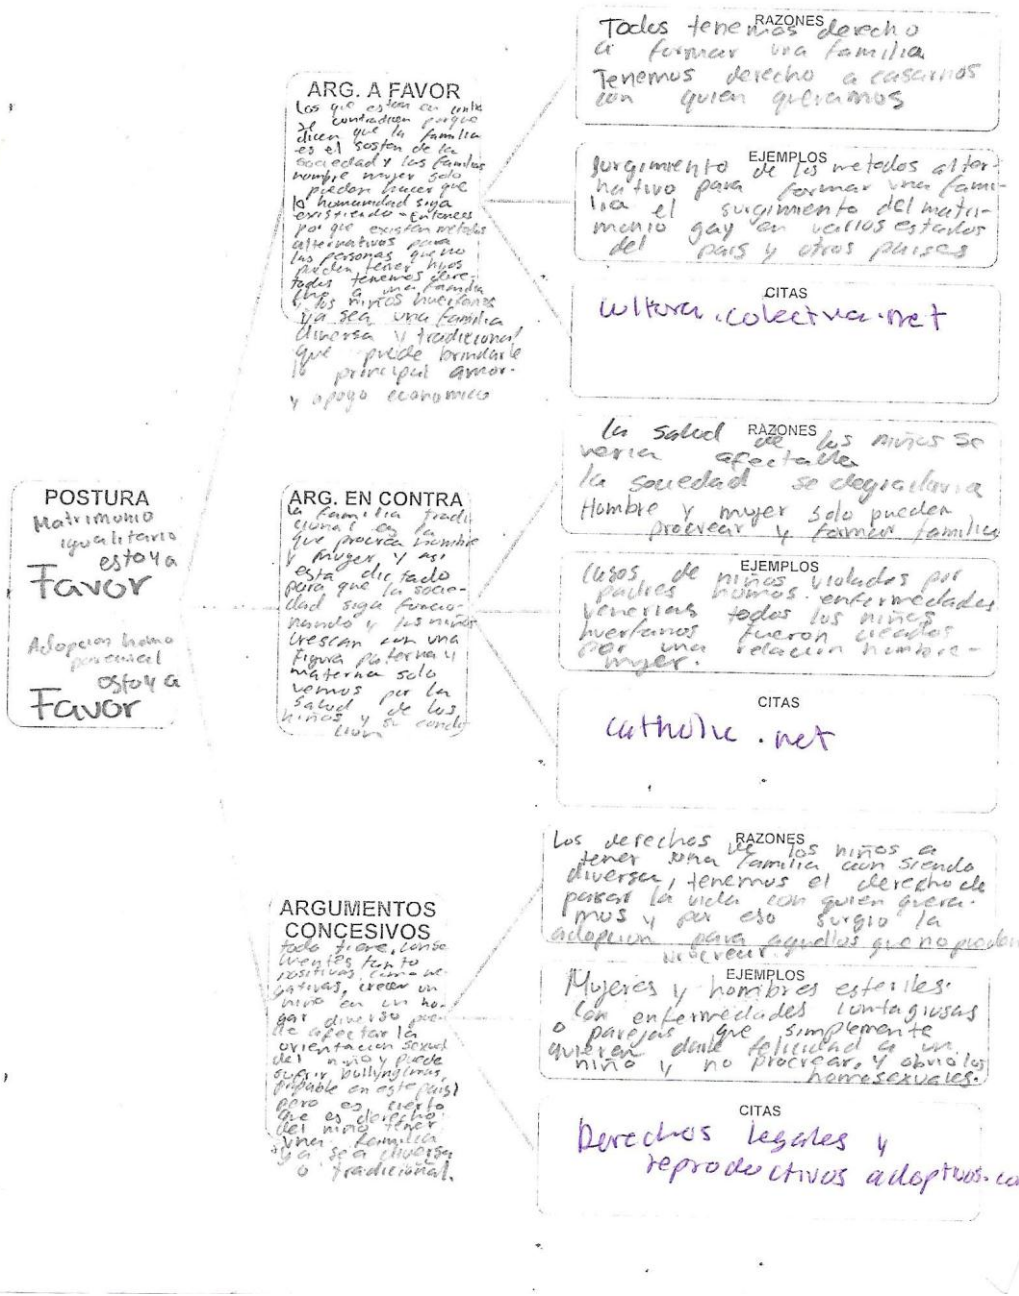 POSTURA
Matrimonio
igualitario
estoy a
Favor
Adopcion homo
parental
estoy a
Favor
ARG. A FAVOR
Los que estan en contra
se contradicen porque
dicen que la familia
es el sosten de la
sociedad y las familias
hombre mujer solo
pueden hacer que
la humanidad siga
existiendo - Entonces
por que existen metodos
alternativos para
las personas que no
pueden tener hijos
todos tenemos dere-
cho a una familia
y los niños huerfanos
ya sea una familia
diversa y tradicional
que puede brindarle
lo principal amor.
y apoyo economico
RAZONES
Todos tenemos derecho
a formar una familia
Tenemos derecho a casarnos
con quien queramos
EJEMPLOS
Surgimiento de los metodos alter-
nativo para formar una fami-
lia el surgimiento del matri-
monio gay en varios estados
del pais y otros paises
CITAS
cultura.colectiva.net
ARG. EN CONTRA
la familia tradi
cional es la
que procrea hombre
y muger y asi
esta dictado
para que la socie-
dad siga funcio-
nando y los niños
crescan con una
figura paterna y
materna solo
vemos por la
salud de los
niños y su condi
cion
RAZONES
la salud de los niños se
veria afectada
la sociedad se degradaria
Hombre y mujer solo pueden
procrear y formar familia
EJEMPLOS
Casos de niños violados por
padres homos. enfermedades
venerias todos los niños
huerfanos fueron creados
por una relacion hombre-
mujer.
CITAS
catholic.net
ARGUMENTOS
CONCESIVOS
todo tiene, conse
cuentes tanto
positivas, como ne-
gativas, crecer un
niño en un ho-
gar diverso pue-
de afectar la
orientacion sexual
del niño y puede
sufrir bullyng (mas
probable en este pais)
pero es cierto
que es derecho
del niño tener
una familia
ya sea diversa
o tradicional.
RAZONES
Los derechos de los niños a
tener una familia aun siendo
diversa, tenemos el derecho de
pasar la vida con quien quera-
mos y por eso surgio la
adopcion para aquellos que no puedan
procrear.
EJEMPLOS
Mujeres y hombres esteriles.
Con enfermedades contagiosas
o parejas que simplemente
quieran darle felicidad a un
niño y no procrear, y obvio los
homosexuales.
CITAS
Derechos legales y
reproductivos adoptivos.co